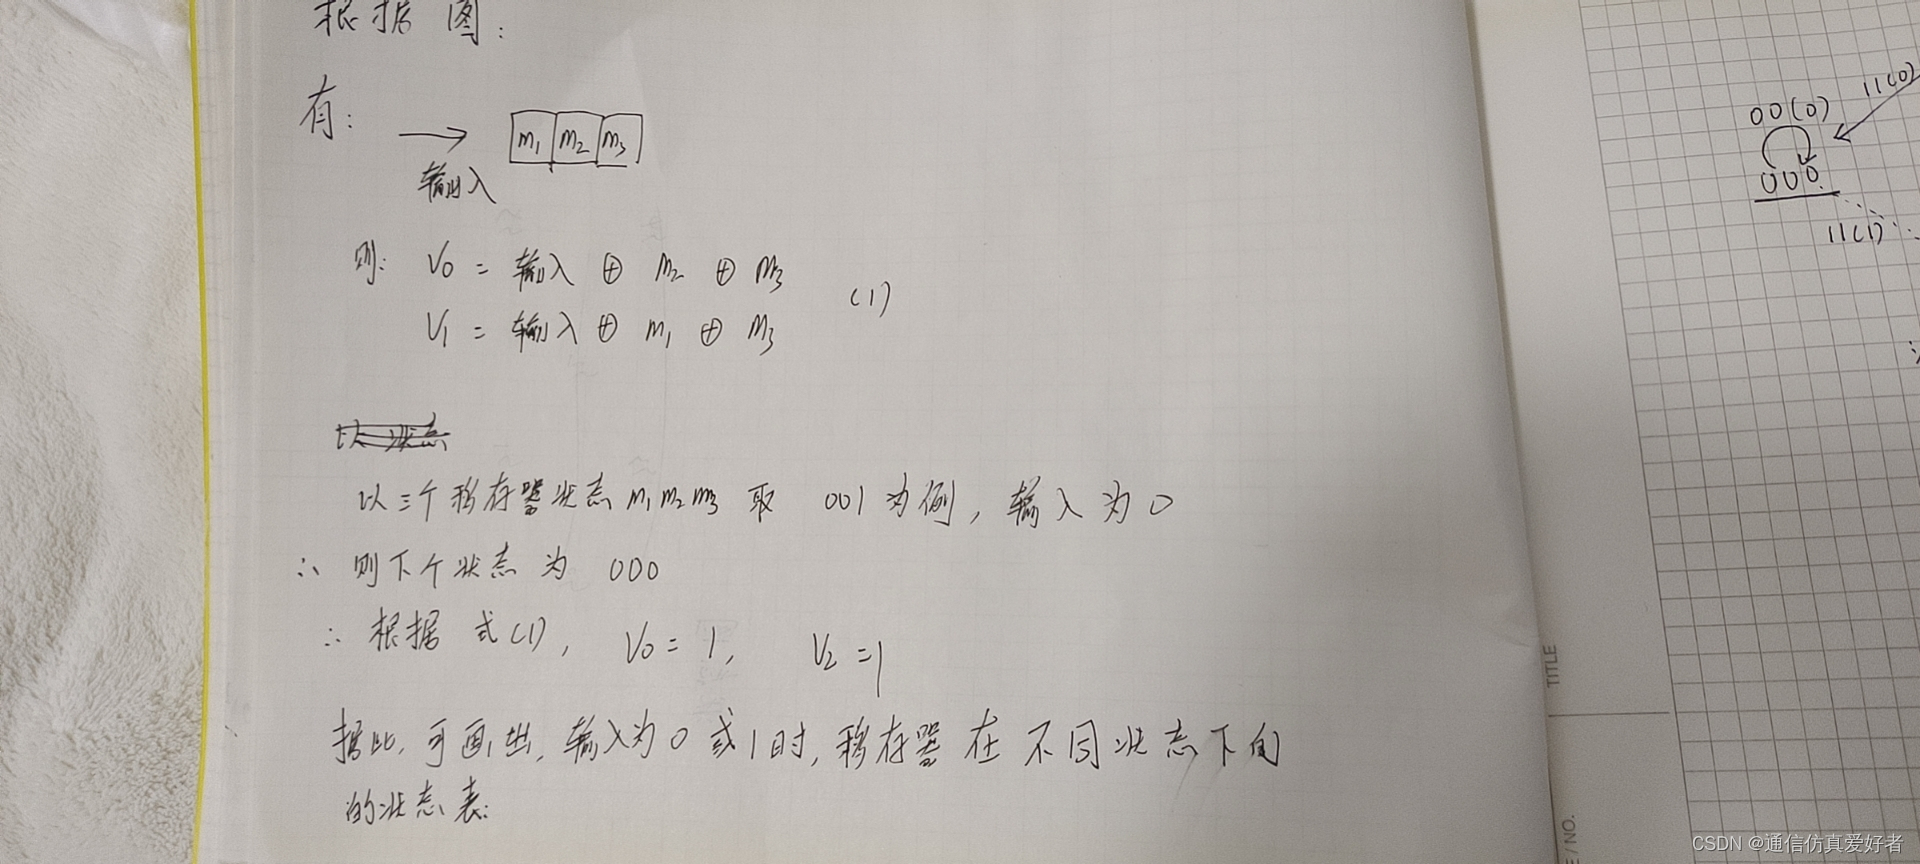 根据图:
有:
m1 m2 m3
输入
则: V0 = 输入 ⊕ m2 ⊕ m3
(1)
V1 = 输入 ⊕ m1 ⊕ m3
以三个移存器状态 m1m2m3 取 001 为例, 输入为0
∴ 则下个状态为 000
∴ 根据 式(1), V0 = 1, V2 = 1
据此, 可画出, 输入为0或1时, 移存器在不同状态下的
的状态表:
11(0)
00(0)
000
11(1)
TITLE
E / NO.
CSDN @通信仿真爱好者